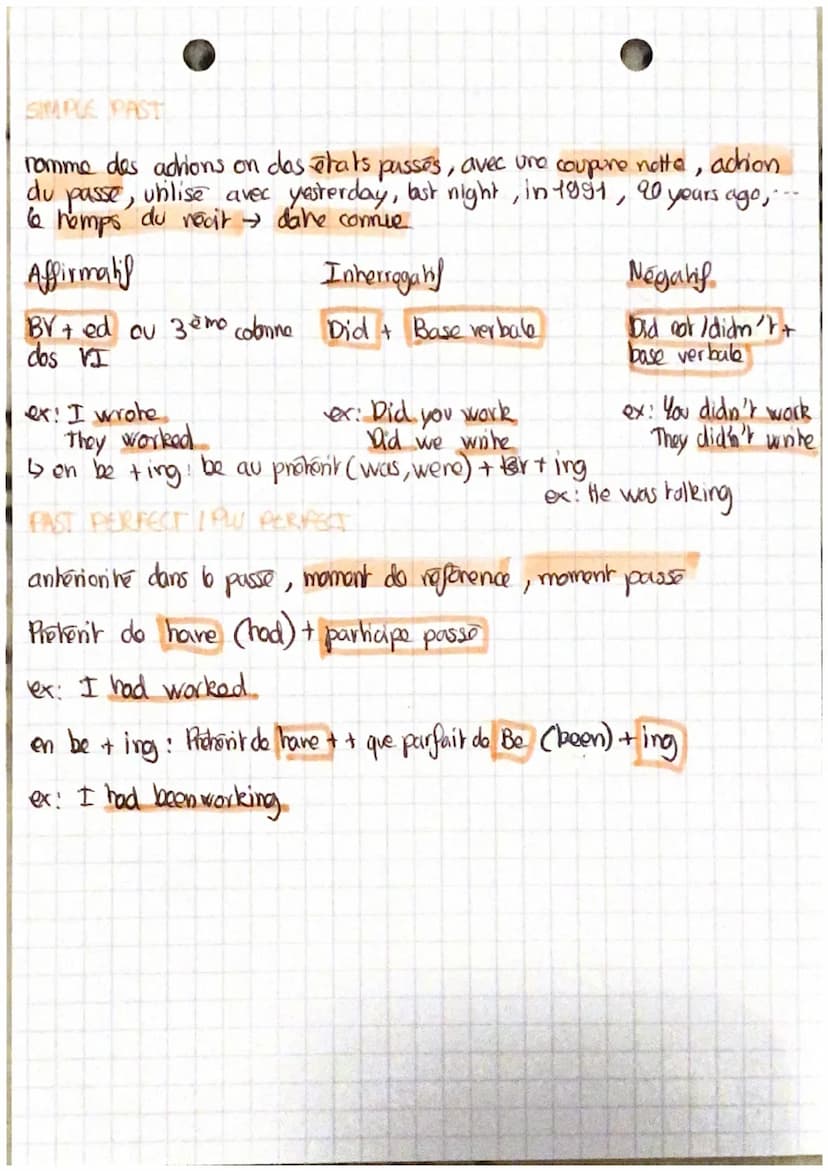 SIMPLE PAST
nomme des actions ou des états passés, avec une coupure nette, action
du passé, utilisé avec yesterday, last night, in 1991, 20 years ago,...
le temps du récit → date connue
Affirmatif Interrogatif Négatif
BV + ed ou 3ème colonne Did + Base verbale Did not / didn't +
des VI base verbale
ex: I wrote ex: Did you work ex: You didn't work
They worked Did we write They didn't write
↳ en be + ing: be au prétérit (was, were) + BV + ing
ex: He was talking
PAST PERFECT / PLU PERFECT
antériorité dans le passé, moment de référence, moment passé
Prétérit de have (had) + participe passé
ex: I had worked
en be + ing: Prétérit de have + + que parfait de Be (been) + ing
ex: I had been working